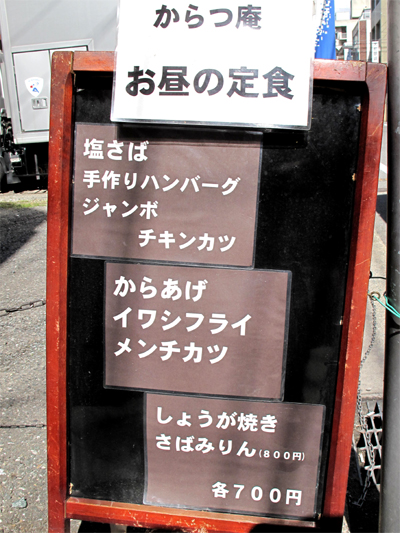 からつ庵
お昼の定食
塩さば
手作りハンバーグ
ジャンボ
チキンカツ
からあげ
イワシフライ
メンチカツ
しょうが焼き
さばみりん(800円)
各700円